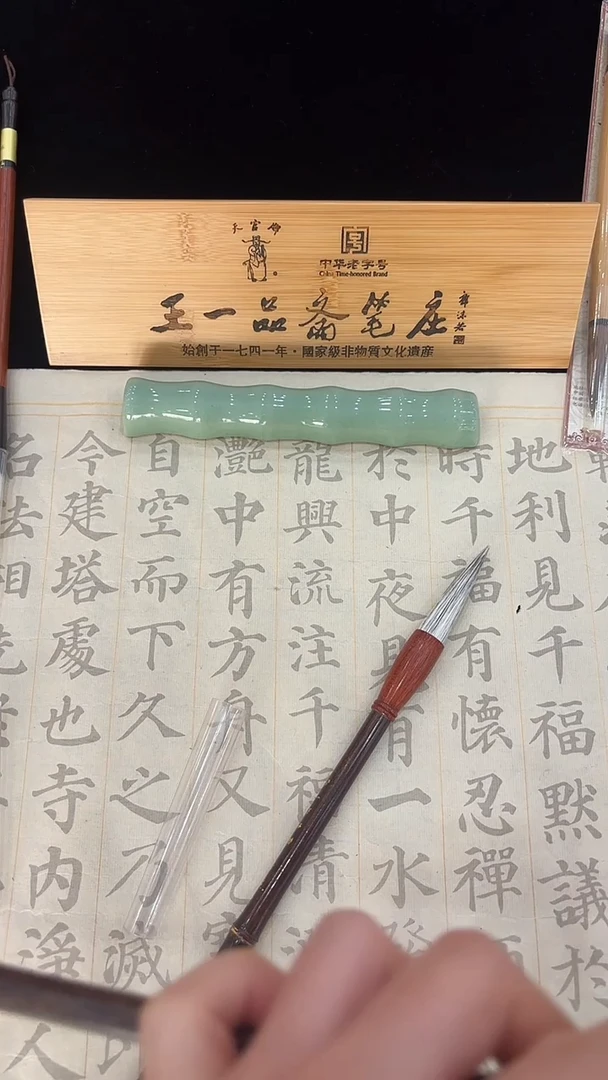 天官牌
中华老字号
China Time-honored Brand
王一品斋笔庄
郭沫若
始創于一七四一年·國家級非物質文化遺產
地利見千福默議於
時千福有懷忍禪師
於中夜見有一水發
龍興流注千福清
灩中有方舟又見寶
自空而下久之乃滅即
今建塔處也寺内淨人
名法相先